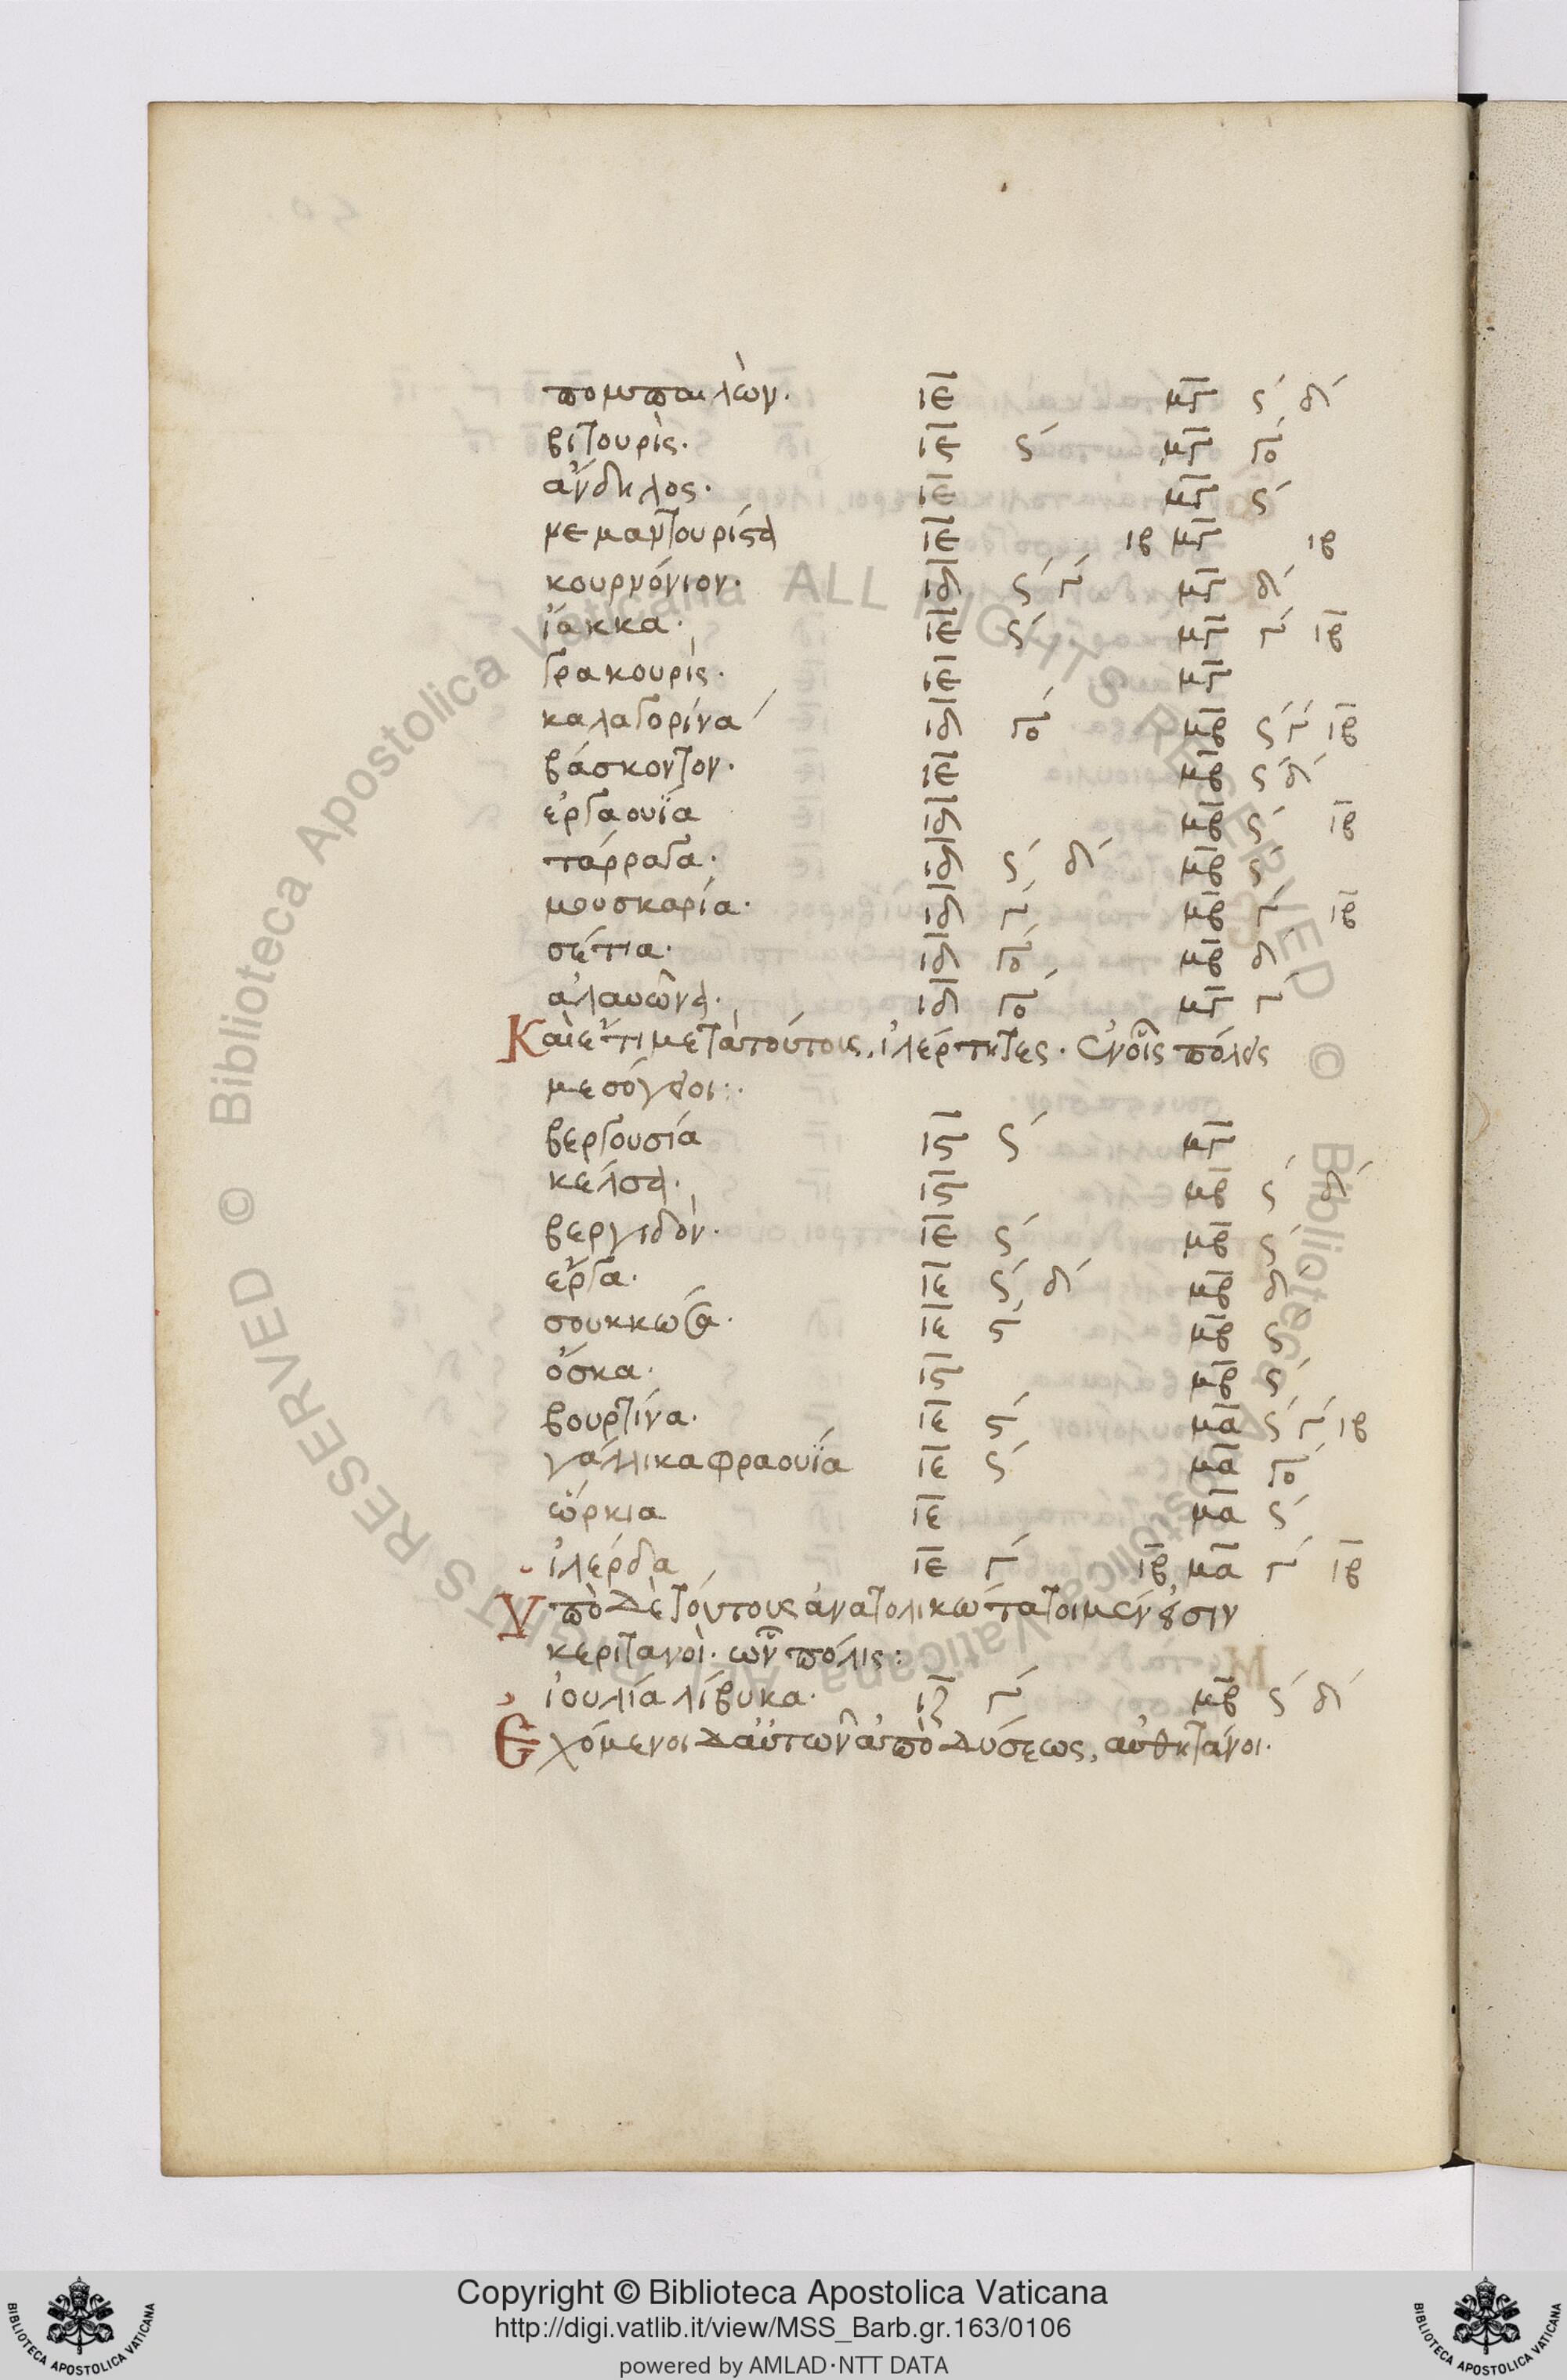 πομπαιλὼν. ιε μγ ς´ δ´
βιτουρὶς. ιε ς´ μγ γο´
ἄνδηλος. ιε μγ ς´
νεμαντουρίσα ιε ιβ μγ ιβ
κουρνόνιον. ιδ ς´ γ´ μγ δ´
ἴακκα. ιε ς´ μγ γ´ ιβ
γρακουρὶς. ιε μγ
καλαγορίνα ιδ γο´ μβ ς´ γ´ ιβ
βάσκοντον. ιε μβ ς´ δ´
ἐργαουΐα ιδ μβ ς´ ιβ
τάρραγα. ιδ ς´ δ´ μβ ς´
μουσκαρία. ιδ γ´ μβ γ´ ιβ
σέτια. ιδ γο´ μβ δ´
ἀλαυῶνα. ιδ γο´ μγ γ´
Καὶ ἔτι μετὰ τούτοις, ἰλέρτητες. ἐν οἷς πόλεις
μεσόγειοι:
βεργουσία ις ς´ μγ
κέλσα. ις μβ ς´ δ´
βεργιδὸν. ιε ς´ μβ ς´
ἔργα. ιε ς´ δ´ μβ δ´
σουκκῶσα. ιε ς´ μβ ς´
ὄσκα. ις μβ ς´
βουρτίνα. ιε ς´ μα ς´ γ´ ιβ
γάλλικα φραουΐα ιε ς´ μα γο´
ὤρκια ιε μα ς´
ἰλέρδα ιε γ´ ιβ μα γ´ ιβ
Υπὸ δὲ τούτους ἀνατολικώτατοι μέν εἰσιν
κεριτανοὶ. ὧν πόλις:
ἰουλία λίβυκα. ιζ γ´ μβ ς´ δ´
Εχόμενοι δ αὐτῶν ἀπὸ δύσεως, αὐθητάνοι.
Copyright © Biblioteca Apostolica Vaticana
http://digi.vatlib.it/view/MSS_Barb.gr.163/0106
powered by AMLAD·NTT DATA
BIBLIOTECA APOSTOLICA VATICANA
BIBLIOTECA APOSTOLICA VATICANA
Biblioteca Apostolica Vaticana ALL RIGHTS RESERVED ©
Biblioteca Apostolica Vaticana ALL RIGHTS RESERVED ©